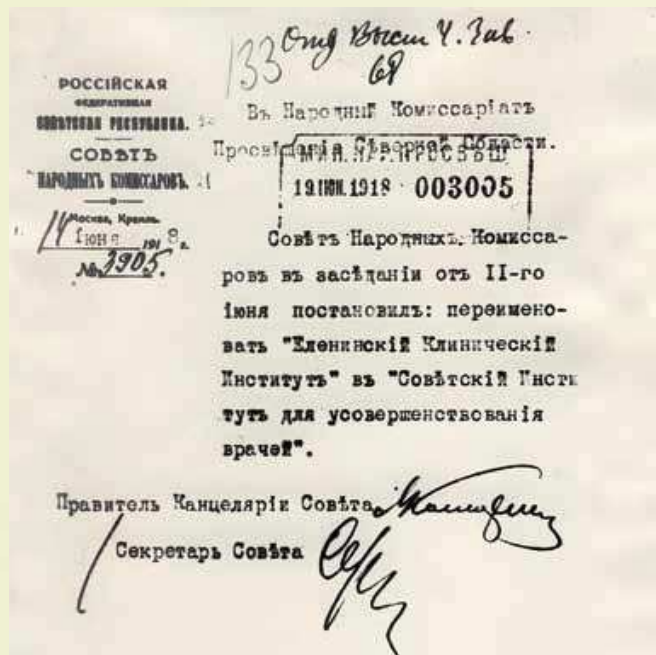 133 Отд Высш У. Зав.
РОССІЙСКАЯ
ФЕДЕРАТИВНАЯ
СОВѢТСКАЯ РЕСПУБЛИКА.
СОВѢТЪ
НАРОДНЫХЪ КОМИССАРОВЪ.
Москва, Кремль.
14 Іюня 1918 г.
№ 3905.
Въ Народный Комиссаріатъ
Просвѣщенія Сѣверной Области.
МИН. НАР. ПРОСВѢЩ
19.ІЮН.1918 003005
Совѣтъ Народныхъ Комисса-
ровъ въ засѣданіи отъ II-го
іюня постановилъ: переимено-
вать "Еленинскій Клиническій
Институтъ" въ "Совѣтскій Инсти
тутъ для усовершенствованія
врачей".
Правитель Канцеляріи Совѣта
Секретарь Совѣта